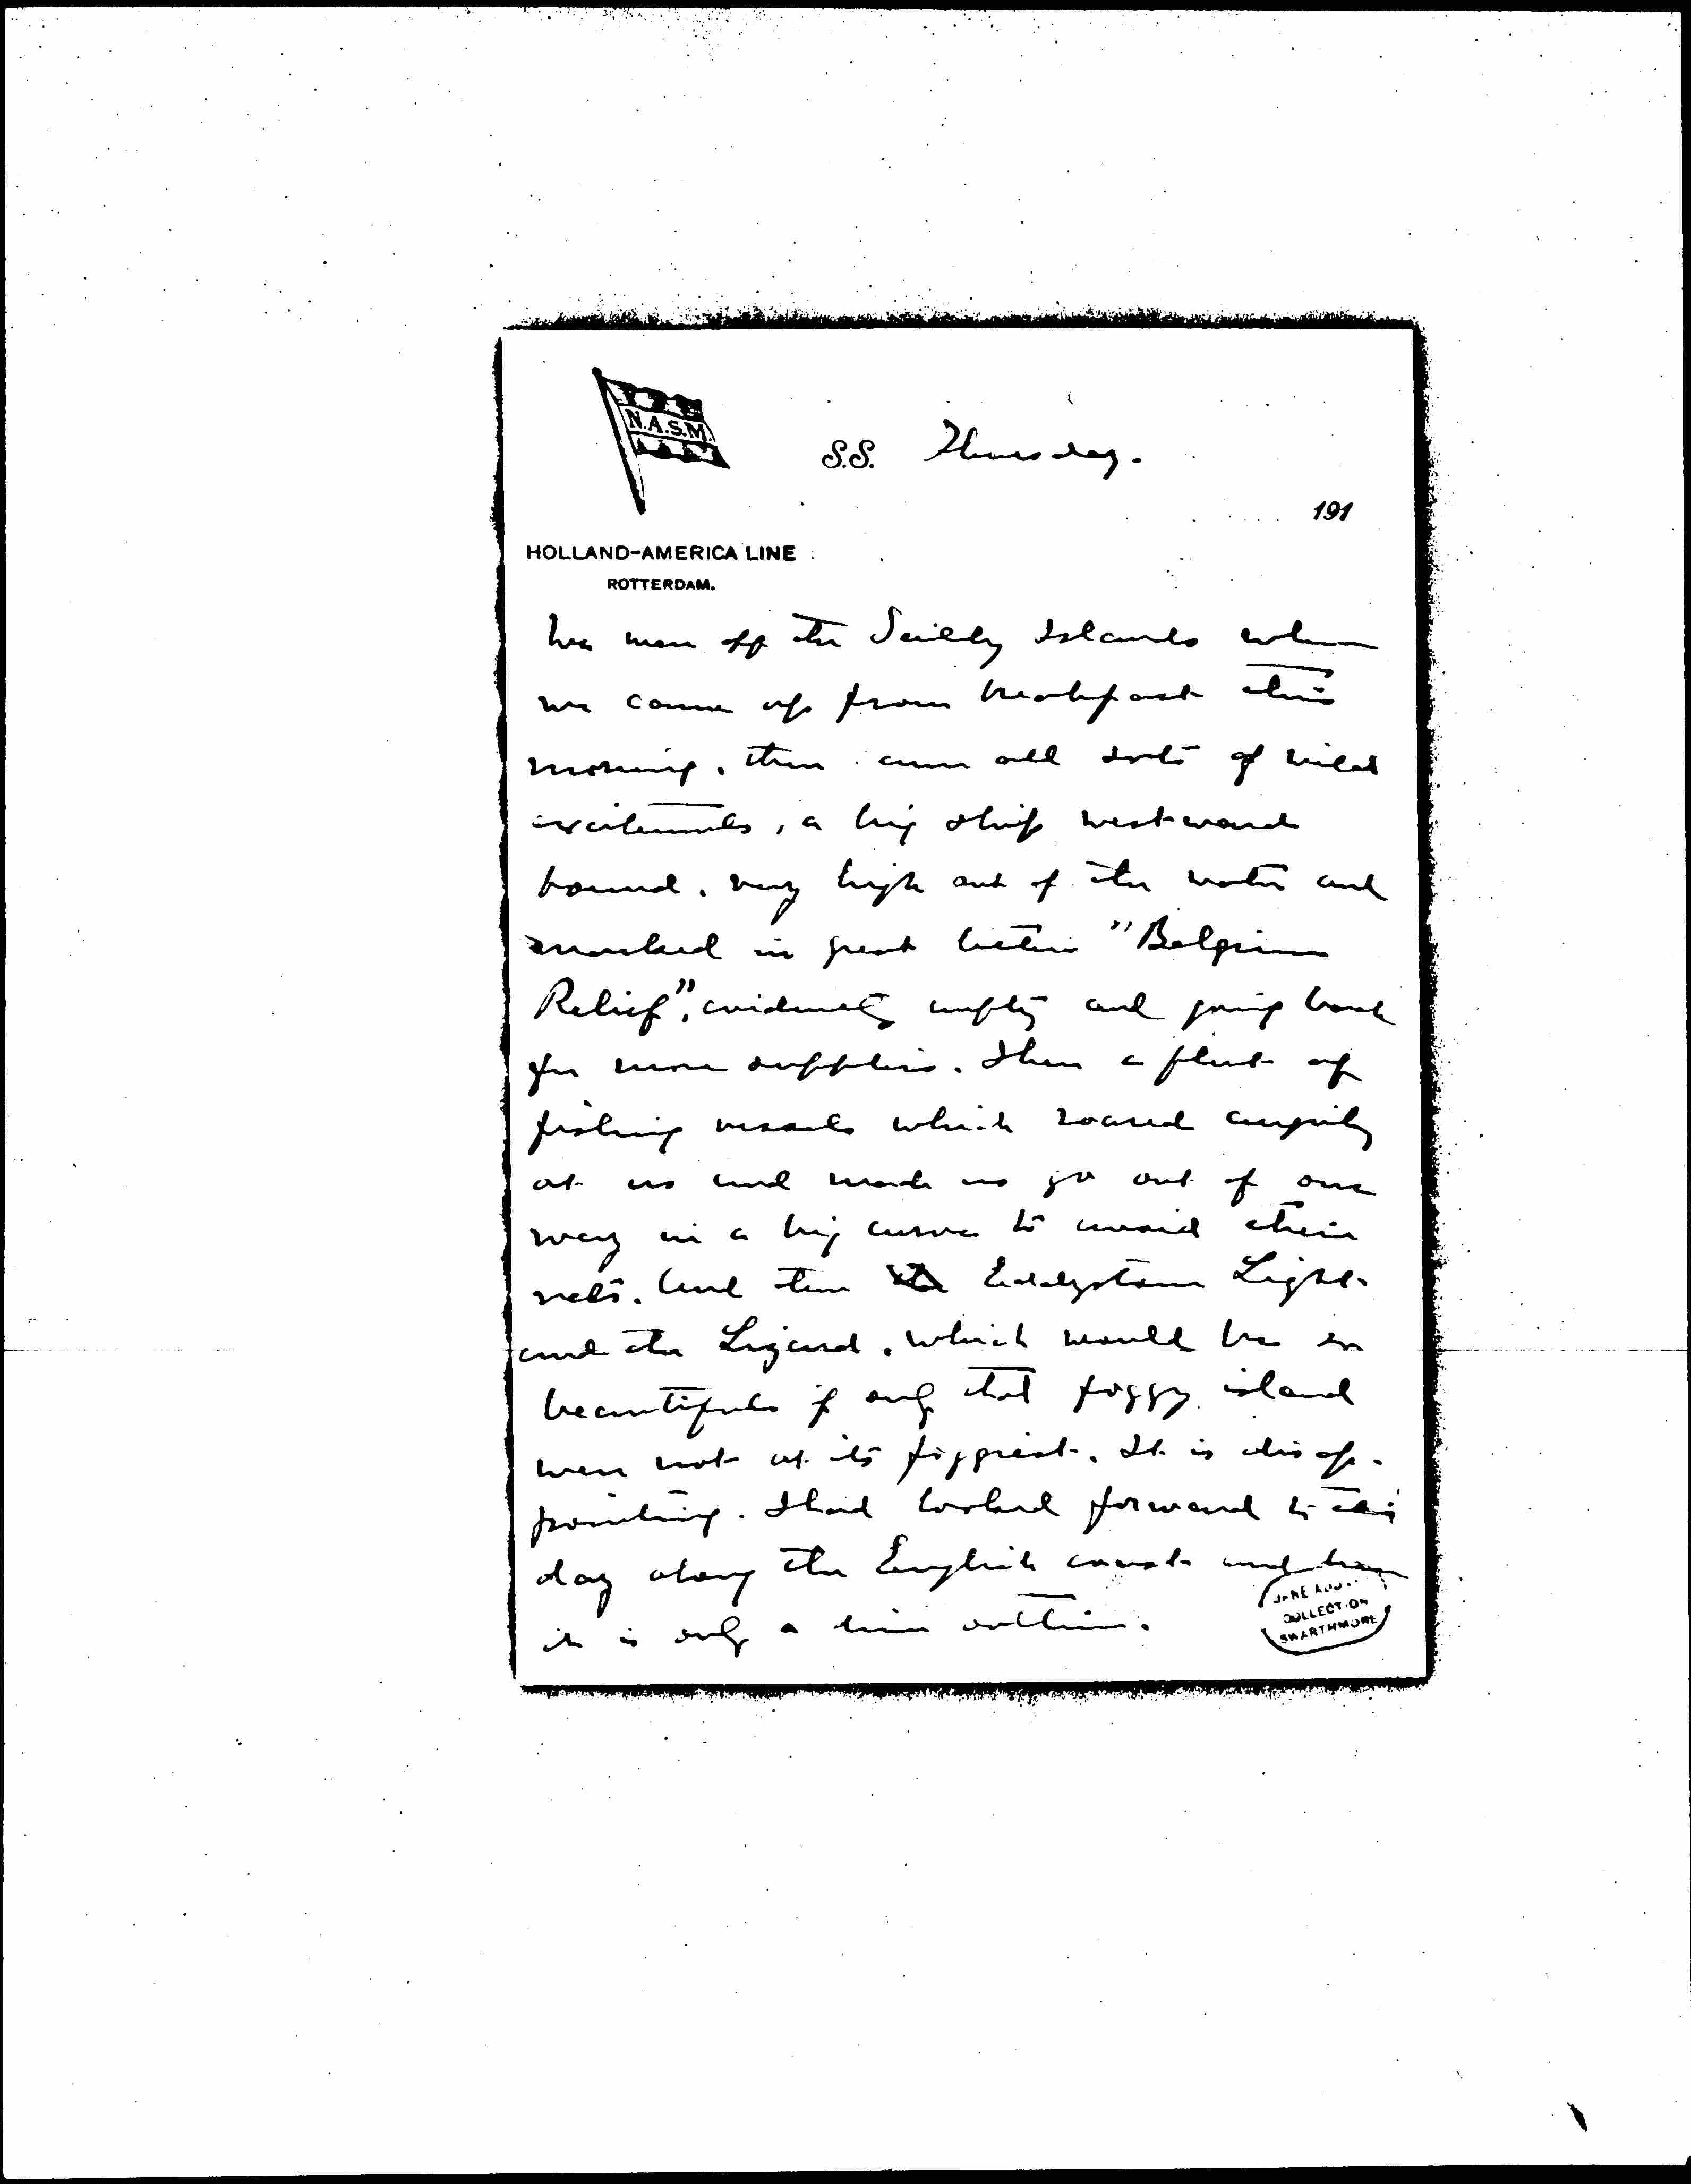 N.A.S.M.
S.S. Thursday.
191
HOLLAND-AMERICA LINE
ROTTERDAM.
We were off the Scilly Islands when
we came up from breakfast this
morning, then came all sorts of mild
excitements, a big ship westward
bound, very high out of the water and
marked in great letters "Belgium
Relief", evidently empty and going back
for more supplies. Then a fleet of
fishing vessels which roared angrily
at us and made us go out of our
way in a big curve to avoid their
nets. And then the Eddystone Light
and the Lizard, which would be so
beautiful if only that foggy island
were not at its foggiest. It is disap-
pointing. I had looked forward to this
day along the English coast and
it is only a dim outline.
JANE
COLLECTION
SWARTHMORE